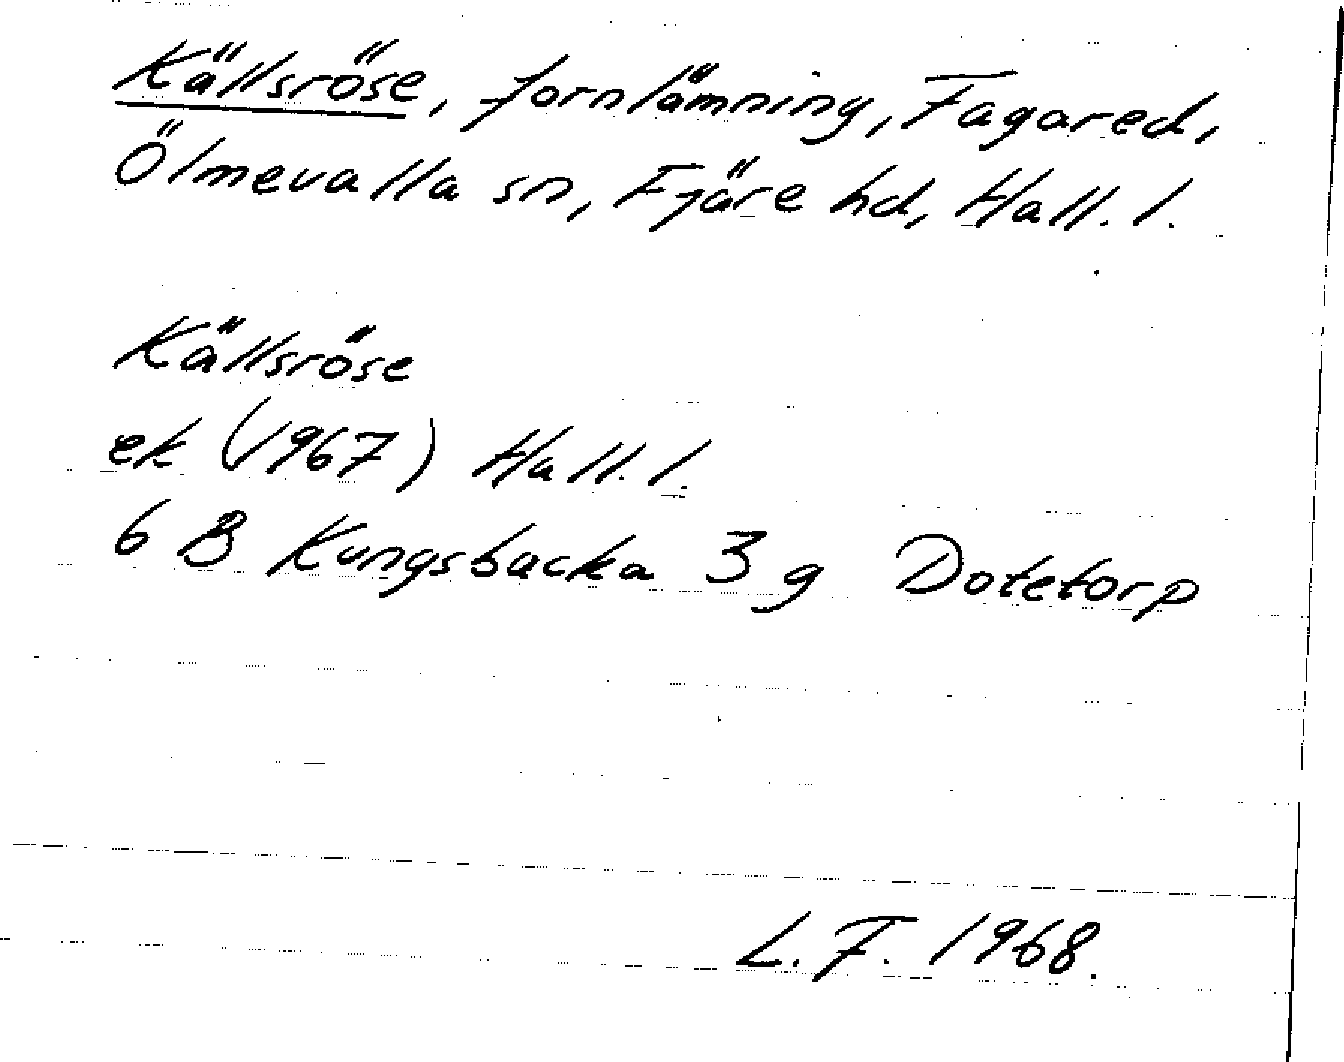 Källsröse, fornlämning, Fagared,
Ölmevalla sn, Fjäre hd, Hall. l.
Källsröse
ek (1967) Hall. l.
6 B Kungsbacka 3 g Dotetorp
L. F. 1968.